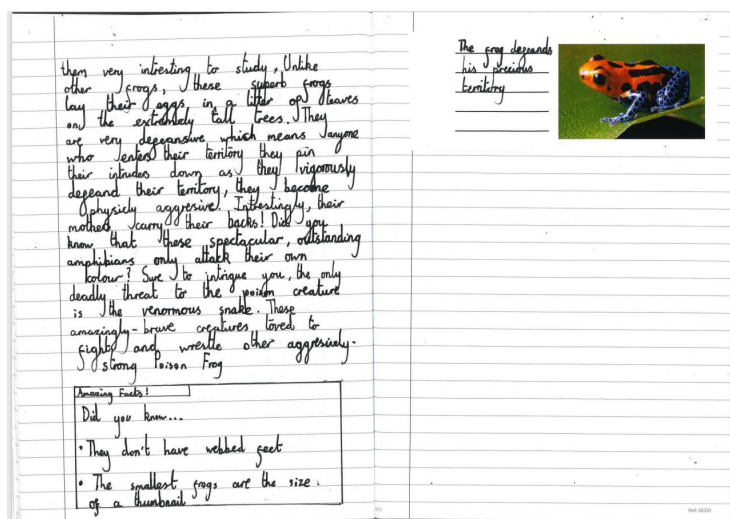 them very intresting to study, Unlike
other frogs, these superb frogs
lay their eggs in a litter of leaves
on the extremely tall trees. They
are very defeansive which means anyone
who enters their territory they pin
their intrudes down as they vigorously
defeand their territory, they become
physicly aggresive. Intrestingly, their
mothers carry their backs! Did you
know that these spectacular, outstanding
amphibians only attack their own
colour? Sure to intrigue you, the only
deadly threat to the poison creature
is the venormous snake. These
amazingly-brave creatures loved to
fight and wrestle other aggresively-
strong Poison Frog
Amazing Facts!
Did you know...
• They don't have webbed feet
• The smallest frogs are the size
of a thumbnail
The frog defeands
his precious
territory